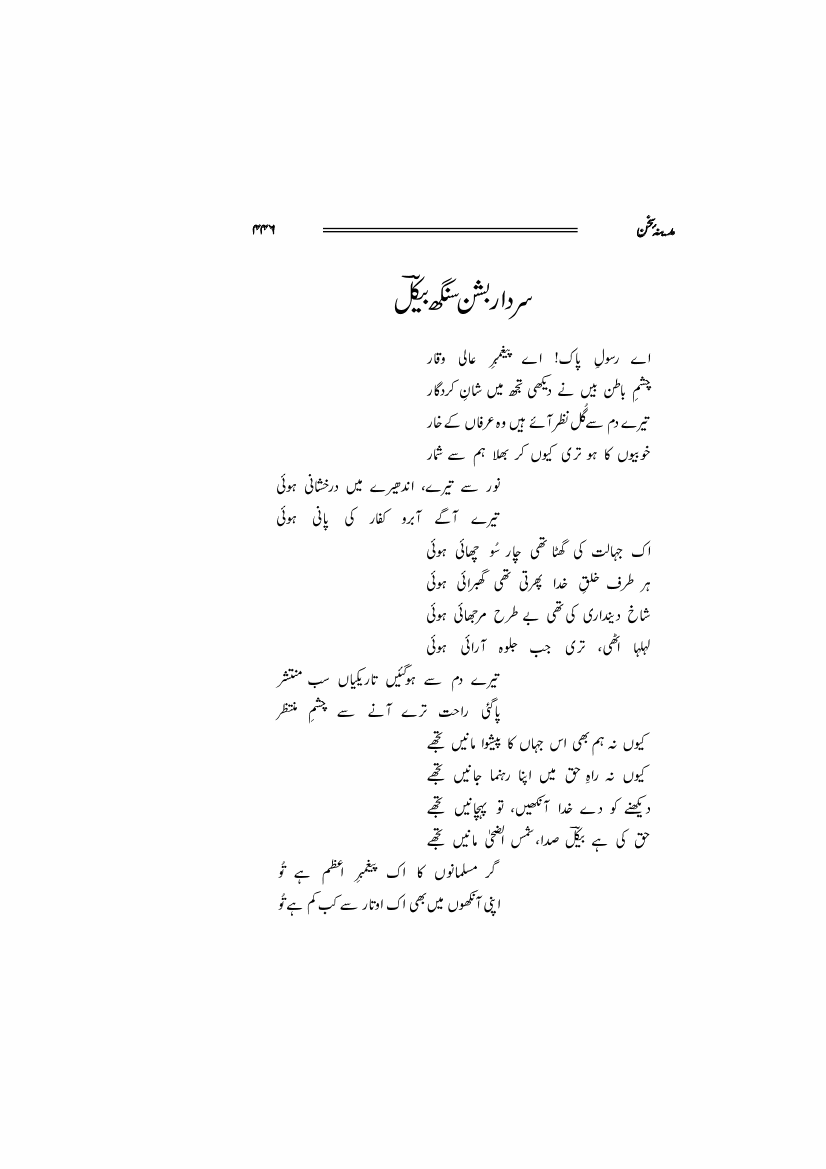 مدینہ سخن ۴۴۶
سردار بشن سنگھ بیکلؔ
اے رسولِ پاک! اے پیغمبرِ عالی وقار
چشمِ باطن بیں نے دیکھی تجھ میں شانِ کردگار
تیرے دم سے گُل نظر آئے ہیں وہ عرفاں کے خار
خوبیوں کا ہو تری کیوں کر بھلا ہم سے شمار
نور سے تیرے، اندھیرے میں درخشانی ہوئی
تیرے آگے آبرو کفار کی پانی ہوئی
اک جہالت کی گھٹا تھی چار سُو چھائی ہوئی
ہر طرف خلقِ خدا پھرتی تھی گھبرائی ہوئی
شاخ دینداری کی تھی بے طرح مرجھائی ہوئی
لہلہا اٹھی، تری جب جلوہ آرائی ہوئی
تیرے دم سے ہوگئیں تاریکیاں سب منتشر
پاگئی راحت ترے آنے سے چشمِ منتظر
کیوں نہ ہم بھی اس جہاں کا پیشوا مانیں تجھے
کیوں نہ راہِ حق میں اپنا رہنما جانیں تجھے
دیکھنے کو دے خدا آنکھیں، تو پہچانیں تجھے
حق کی ہے بیکلؔ صدا، شمس الضحیٰ مانیں تجھے
گر مسلمانوں کا اک پیغمبرِ اعظم ہے تُو
اپنی آنکھوں میں بھی اک اوتار سے کب کم ہے تُو